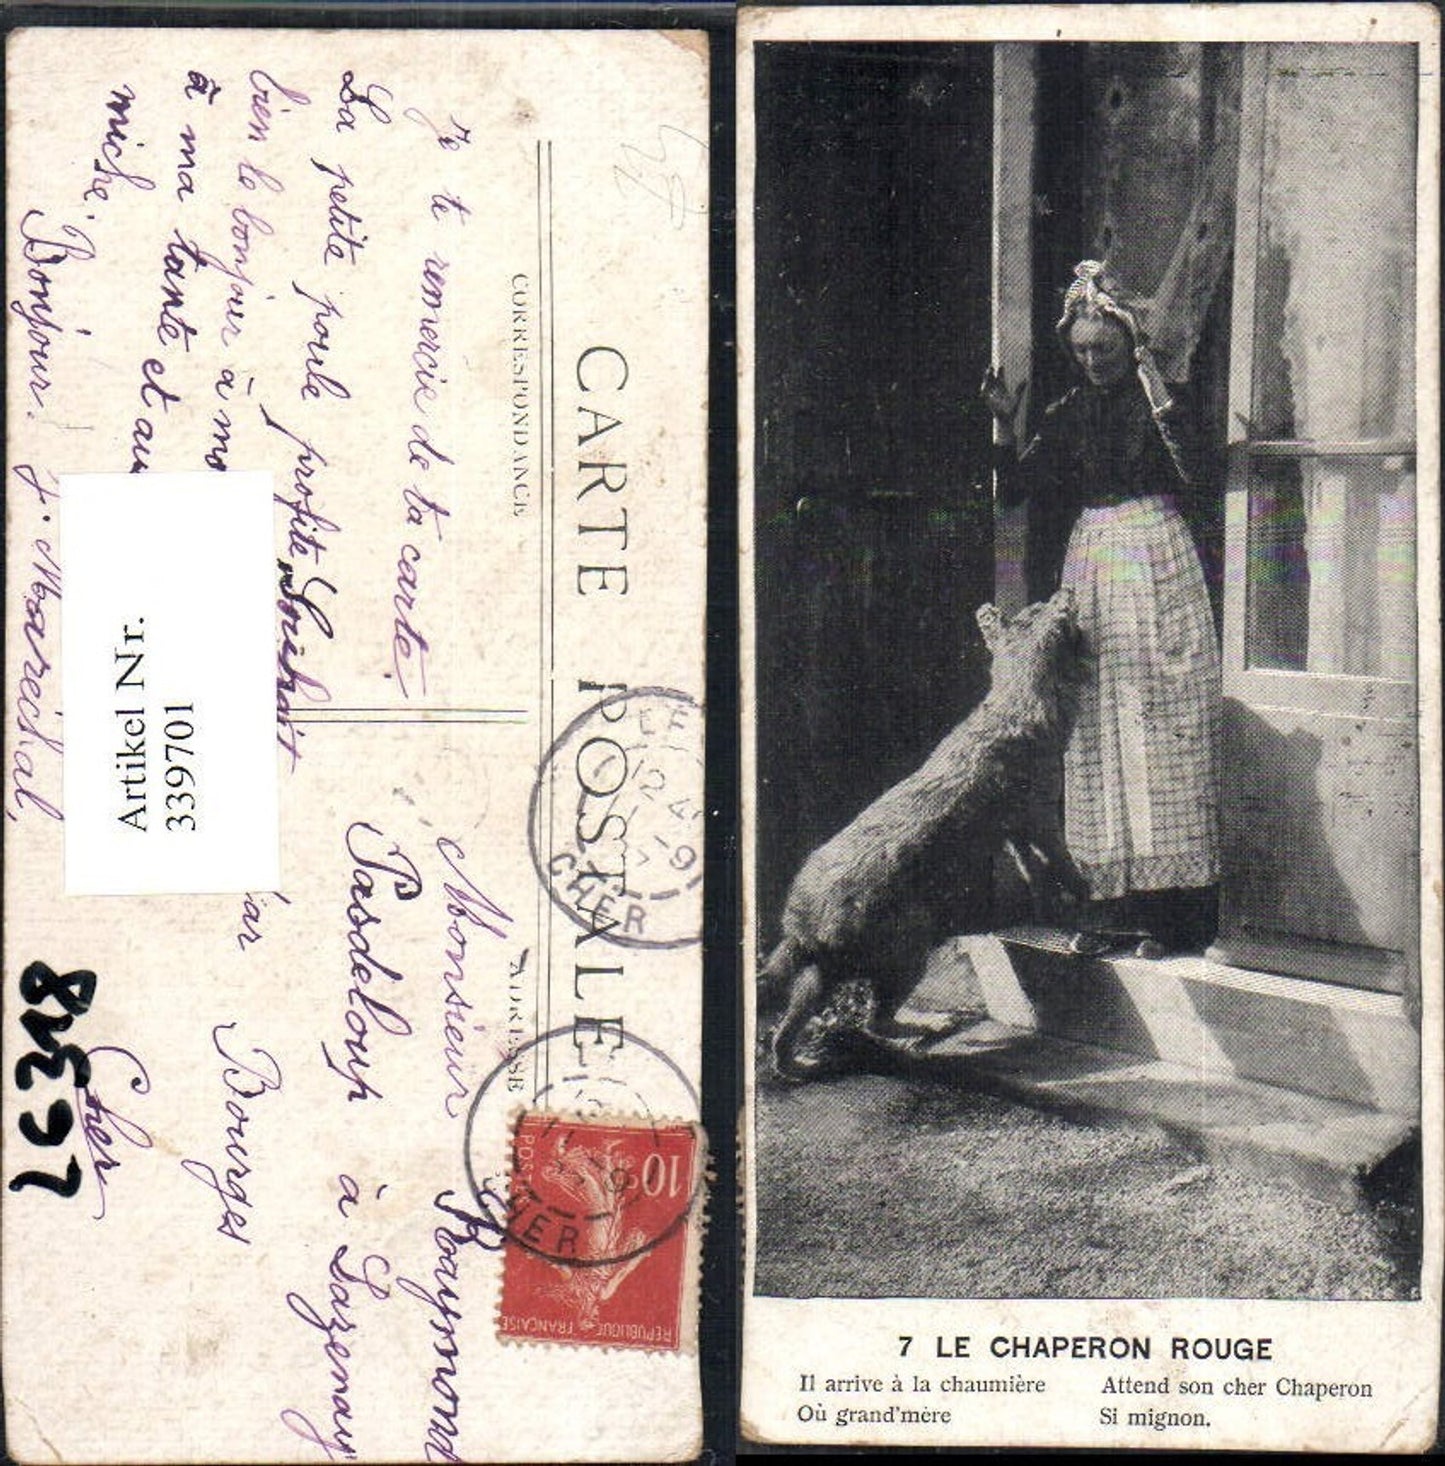 CARTE POSTALE
CORRESPONDANCE
ADRESSE
Je te remercie de ta carte.
La petite poule profite
bien le bonjour à mo
à ma tante et au
miche.
Bonjour.
J. Marechal,
Monsieur Raymond
Pasdeloup à Lazenay
par Bourges
Cher
Artikel Nr.
339701
LC318
CHER
CHER
10c
POSTES
REPUBLIQUE FRANÇAISE
7 LE CHAPERON ROUGE
Il arrive à la chaumière
Où grand'mère
Attend son cher Chaperon
Si mignon.